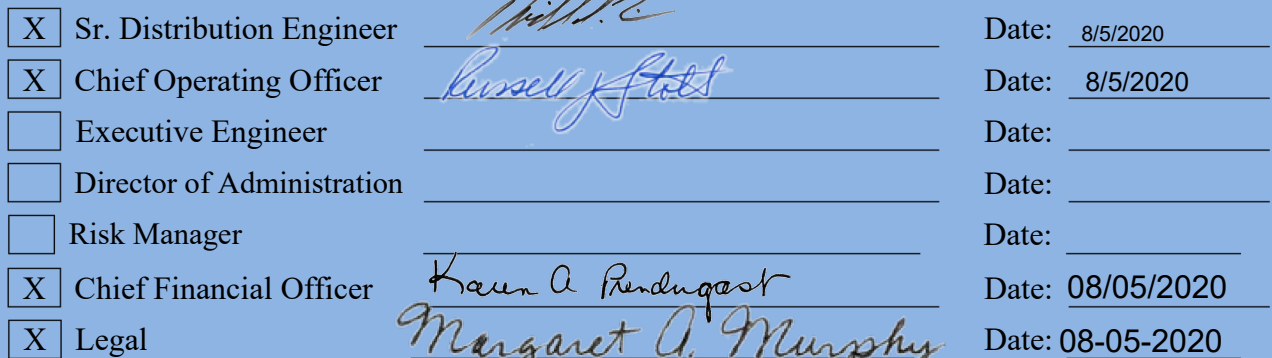 X Sr. Distribution Engineer Date: 8/5/2020
X Chief Operating Officer Russell J Stott Date: 8/5/2020
Executive Engineer Date:
Director of Administration Date:
Risk Manager Date:
X Chief Financial Officer Karen A Prendergast Date: 08/05/2020
X Legal Margaret A. Murphy Date: 08-05-2020